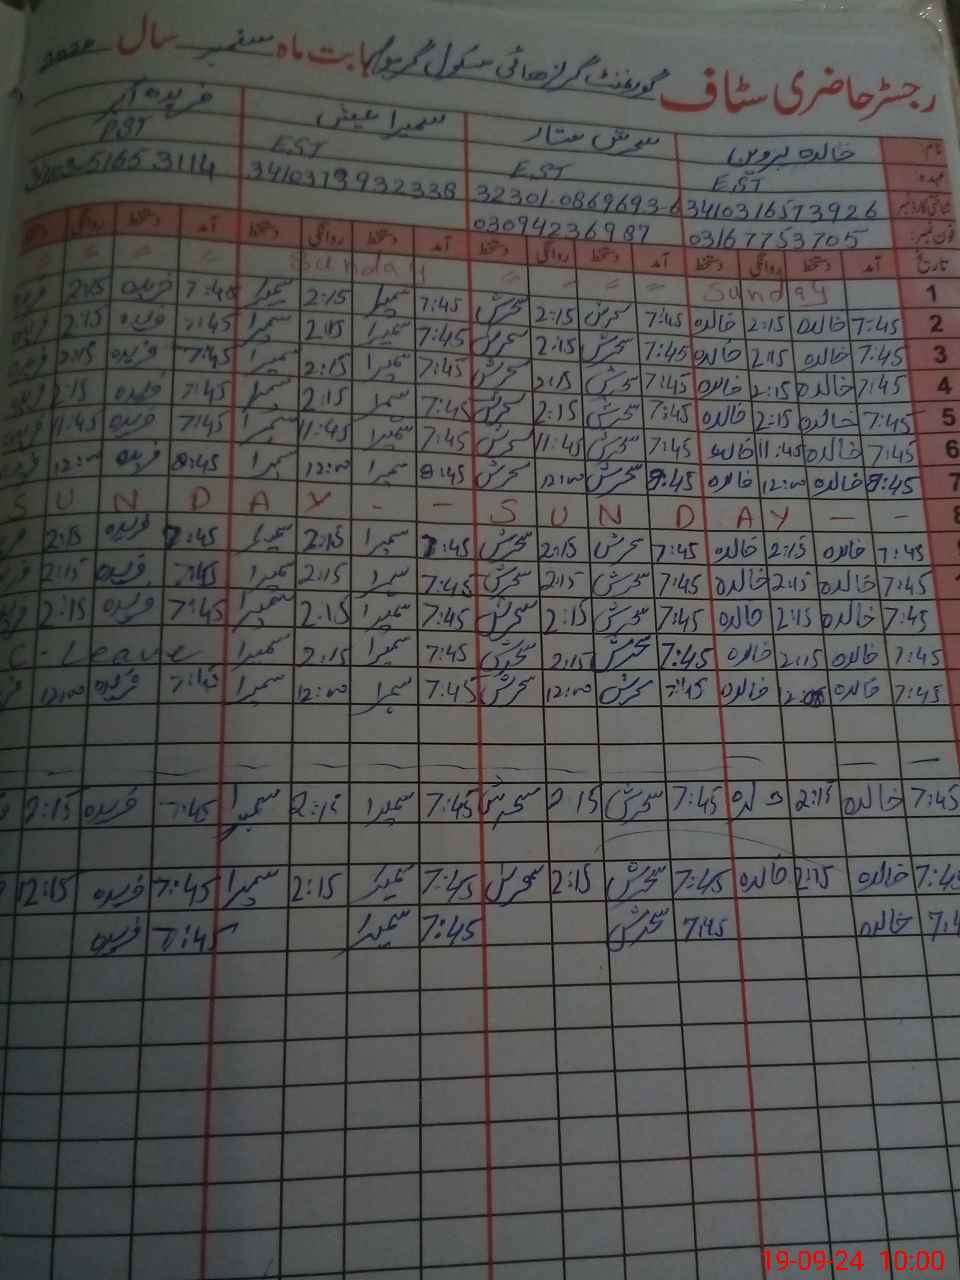 رجسٹر حاضری سٹاف گورنمنٹ گرلز ھائی سکول بابت ماہ ستمبر سال
نام: خالدہ پروین سحرش ستار سمیرا فریدہ
عہدہ: EST EST EST PST
شناختی کارڈ نمبر 3410316573926 3410373932338
فون نمبر: 03167753705 03094236987
تاریخ آمد دستخط روانگی دستخط آمد دستخط روانگی دستخط آمد دستخط روانگی دستخط آمد دستخط روانگی
1 Sunday Sunday
2 7:45 خالدہ 2:15 خالدہ 7:45 سحرش 2:15 سحرش 7:45 سمیرا 2:15 سمیرا 7:45 فریدہ 2:15
3 7:45 خالدہ 2:15 خالدہ 7:45 سحرش 2:15 سحرش 7:45 سمیرا 2:15 سمیرا 7:45 فریدہ 2:15
4 7:45 خالدہ 2:15 خالدہ 7:45 سحرش 2:15 سحرش 7:45 سمیرا 2:15 سمیرا 7:45 فریدہ 2:15
5 7:45 خالدہ 2:15 خالدہ 7:45 سحرش 2:15 سحرش 7:45 سمیرا 2:15 سمیرا 7:45 فریدہ 2:15
6 7:45 خالدہ 11:45 خالدہ 7:45 سحرش 11:45 سحرش 7:45 سمیرا 11:45 سمیرا 7:45 فریدہ 11:45
7 8:45 خالدہ 12:00 خالدہ 8:45 سحرش 12:00 سحرش 8:45 سمیرا 12:00 سمیرا 8:45 فریدہ 12:00
8 SUNDAY - - SUNDAY - -
7:45 خالدہ 2:15 خالدہ 7:45 سحرش 2:15 سحرش 7:45 سمیرا 2:15 سمیرا 7:45 فریدہ 2:15
7:45 خالدہ 2:15 خالدہ 7:45 سحرش 2:15 سحرش 7:45 سمیرا 2:15 سمیرا 7:45 فریدہ 2:15
7:45 خالدہ 2:15 خالدہ 7:45 سحرش 2:15 سحرش 7:45 سمیرا 2:15 سمیرا 7:45 فریدہ 2:15
7:45 خالدہ 2:15 خالدہ 7:45 سحرش 2:15 سحرش 7:45 سمیرا 2:15 سمیرا C-Leave
7:45 خالدہ خالدہ 7:45 سحرش 12:00 سحرش 7:45 سمیرا 12:00 سمیرا 7:45 فریدہ 12:00
7:45 خالدہ 2:15 خالدہ 7:45 سحرش 2 15 سحرش 7:45 سمیرا 2:15 سمیرا 7:45 فریدہ 2:15
7:45 خالدہ 2:15 خالدہ 7:45 سحرش 2:15 سحرش 7:45 سمیرا 2:15 سمیرا 7:45 فریدہ 12:15
7:4 خالدہ 7:45 سحرش 7:45 سمیرا 7:45 فریدہ
19-09-24 10:00